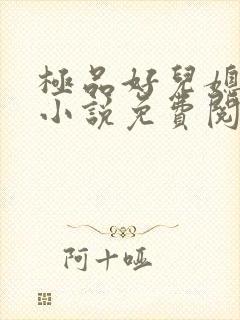 極品好兒媳
小說免費閱
阿十啞